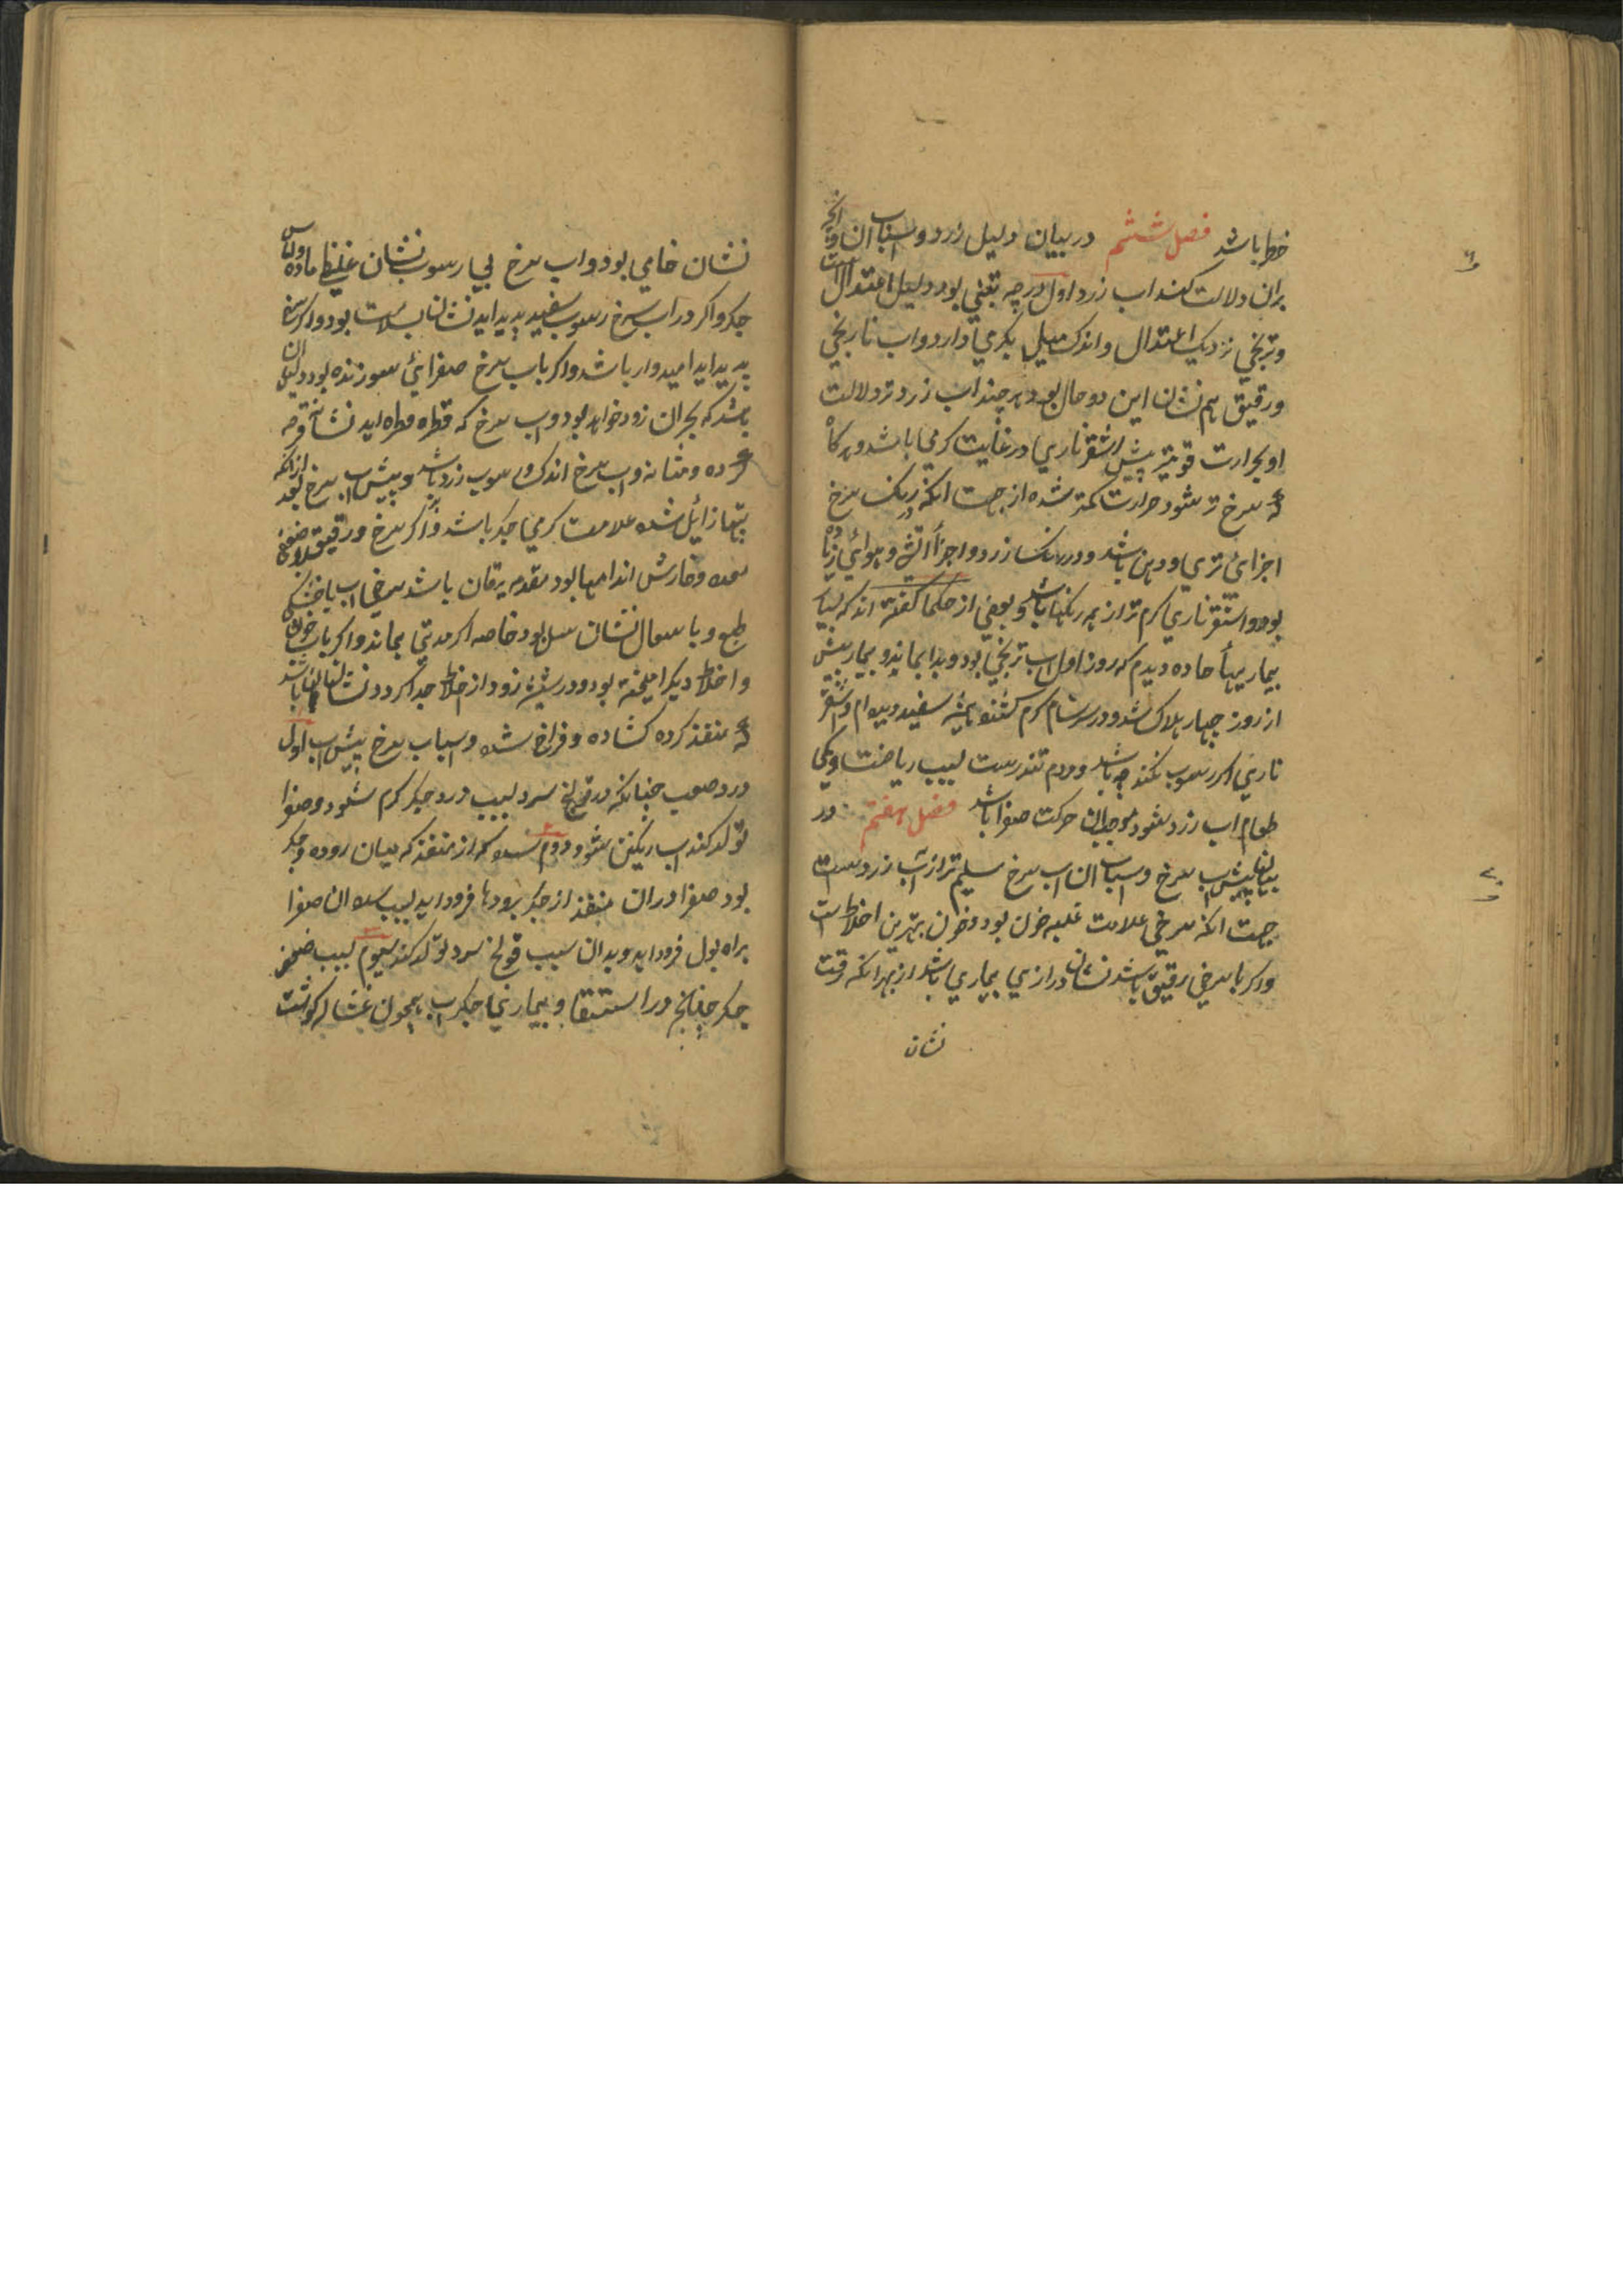 خطر باشد فصل ششم در بیان دلیل زرد و اسباب ان و انچه
بران دلالت کند اب زرد اول درجه تبنی بود و دلیل اعتدال است
و ترنجی نزدیک اعتدال و اندک میل بگرمی دارد و اب نارنجی
و رقیق هم نشان این دو حال بود و هر چند اب زردتر دلالت
او بحرارت قویتر پیش اشقر ناری در غایت گرمی باشد و هرگاه
که سرخ تر شود حرارت کمتر شده از جهت انکه در رنک سرخ
اجزای تری و دهن باشد و در رنک زرد و اجزأ اتش و هوائی زیاده
بود و اشقر ناری گرم تر از همه رنکها باشد و بعضی از حکما گفته اند که بسیار
بیماریهأ حاده دیدم که روز اول اب ترنجی بود و بدا بماند و بیمار پیش
از روز چهار هلاک شد و در سرسام گرم
ناری اکر رسوب نکند چه باشد و مردم تندرست بسبب ریاضت و کمی
طعام اب زرد شود موجب ان حرکت صفرا باشد فصل هفتم در
بیان پیشاب سرخ و اسباب ان اب سرخ سلیم تر از اب زرد است از
جهت انکه سرخی علامت غلبه خون بود و خون بهترین اخلاط است
و اکر با سرخی رقیق باشد نشان درازی بیماری باشد از بهر انکه رقت
نشان
نشان خامی بود و اب سرخ بی رسوب نشان غلیظ ماده و اماس
جکر و اکر در اب سرخ رسوب سفید پدید اید نشان سلامت بود و اکر
پدید اید امیدوار باشد و اکر با اب سرخ صفرائی سوزنده بود دلیل ان
باشد که بحران زود خواهد بود و اب سرخ که قطره قطره اید نشان قرحه
گرده و مثانه و اب سرخ اندک رسوب زرد باشد و پیشاب سرخ بعد از انکه
تبها زایل شده علامت کرمی جکر باشد و اکر سرخ و رقیق
معده و خارش اندامها بود مقدمه یرقان باشد سرخی اب با خشکی
طبع و با سعال نشان سل بود خاصه اکر مدتی بماند و اکر با اب خون
و اخلاط دیکر امیخته بود و در شیشه زود از اخلاط جدا کردد نشان ان باشد
که منفذ کرده کشاده و فراخ شده و اسباب سرخ پیشاب اول
درد صعب چنانکه در قولنج سرد بسبب درد جکر کرم شود و صفرا
تولد کند اب رنکین شود و دوم سده که از منفذ که میان روده و جکر
بود صفرا در ان منفذ از جکر برودها فرود اید بسبب سده ان صفرا
براه بول فرود اید و بدان سبب قولنج سرد تولد کند سیوم بسبب ضعف
جکر چنانچه در استسقا و بیماریهای جکر اب همچون غساله کوشت